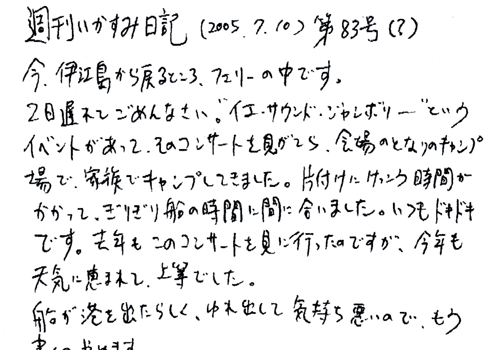 週刊いかすみ日記 (2005.7.10) 第83号(?)
今、伊江島から戻るところ、フェリーの中です。
2日遅れてごめんなさい。"イエ・サウンド・ジャンボリー"という
イベントがあって、そのコンサートを見がてら、会場のとなりのキャンプ
場で、家族でキャンプしてきました。片付けにけっこう時間が
かかって、ぎりぎり船の時間に間に合いました。いつもドキドキ
です。去年もこのコンサートを見に行ったのですが、今年も
天気に恵まれて、上等でした。
船が港を出たらしく、ゆれ出して気持ち悪いので、もう